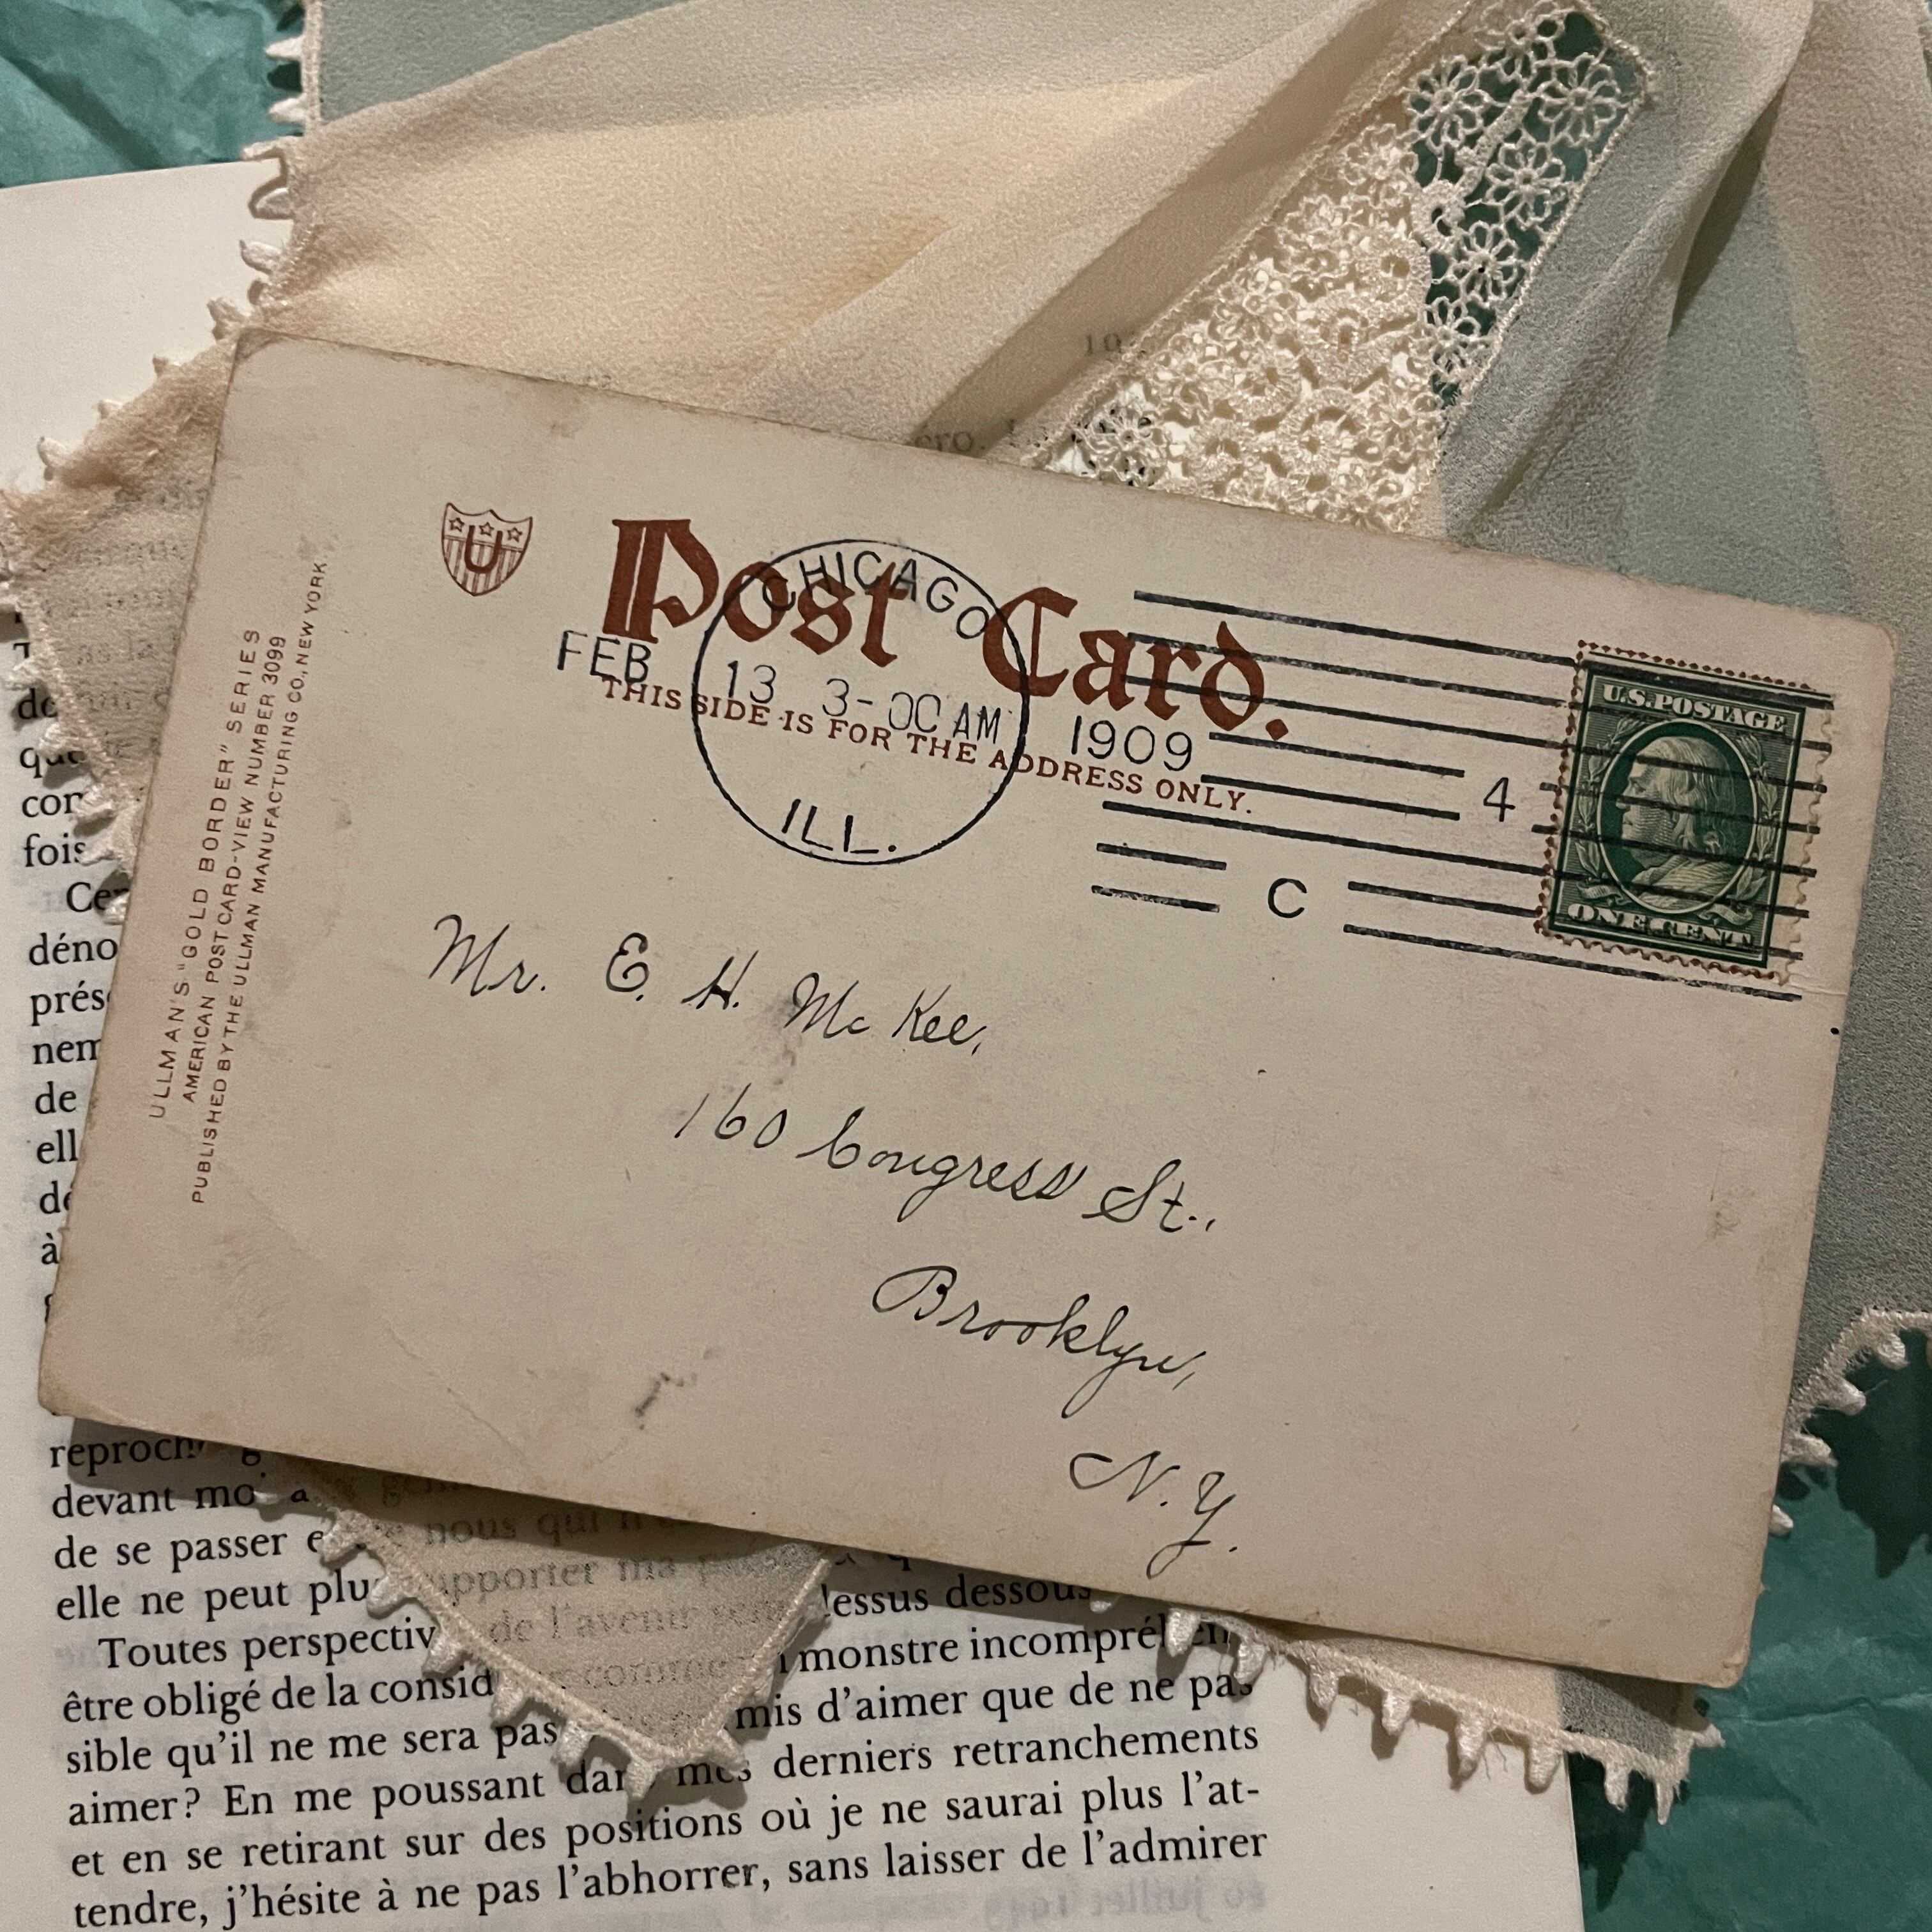 U
Post Card.
THIS SIDE IS FOR THE ADDRESS ONLY.
CHICAGO
FEB 13 3-00 AM 1909
ILL.
4
C
U.S. POSTAGE
ONE CENT
ULLMAN'S "GOLD BORDER" SERIES
AMERICAN POST CARD-VIEW NUMBER 3099
PUBLISHED BY THE ULLMAN MANUFACTURING CO., NEW YORK.
Mr. E. H. McKee,
160 Congress St.,
Brooklyn,
N.Y.
fois
déno
de
ell
à
devant
de se passer
nous qui
elle ne peut plu
supporter ma
dessus dessous
Toutes perspectiv
de l'avenir
monstre incompréhen
être obligé de la consid
comme
mis d'aimer que de ne pas
sible qu'il ne me sera pas
aimer? En me poussant dans mes derniers retranchements
et en se retirant sur des positions où je ne saurai plus l'at-
tendre, j'hésite à ne pas l'abhorrer, sans laisser de l'admirer